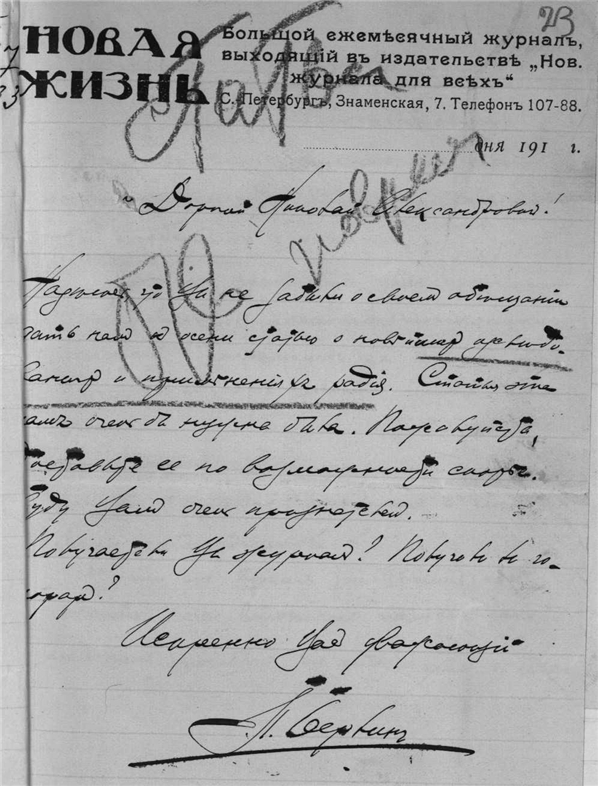 23
НОВАЯ
ЖИЗНЬ
Большой ежемѣсячный журналъ,
выходящій въ издательствѣ „Нов.
журнала для всѣхъ“
С.-Петербургъ, Знаменская, 7. Телефонъ 107-88.
дня 191 г.
Дорогой Николай Александровичъ!
Надѣюсь, что Вы не забыли о своем обѣщании
дать нам к осени статью о новѣйших
и примѣнениях радія. Статья эта
нам очень бы нужна была. Пожалуйста,
доставьте ее по возможности скорѣе.
Буду Вам очень признателен.
Получаете ли Вы журнал? Получили ли го-
норар?
Искренно Вас уважающій